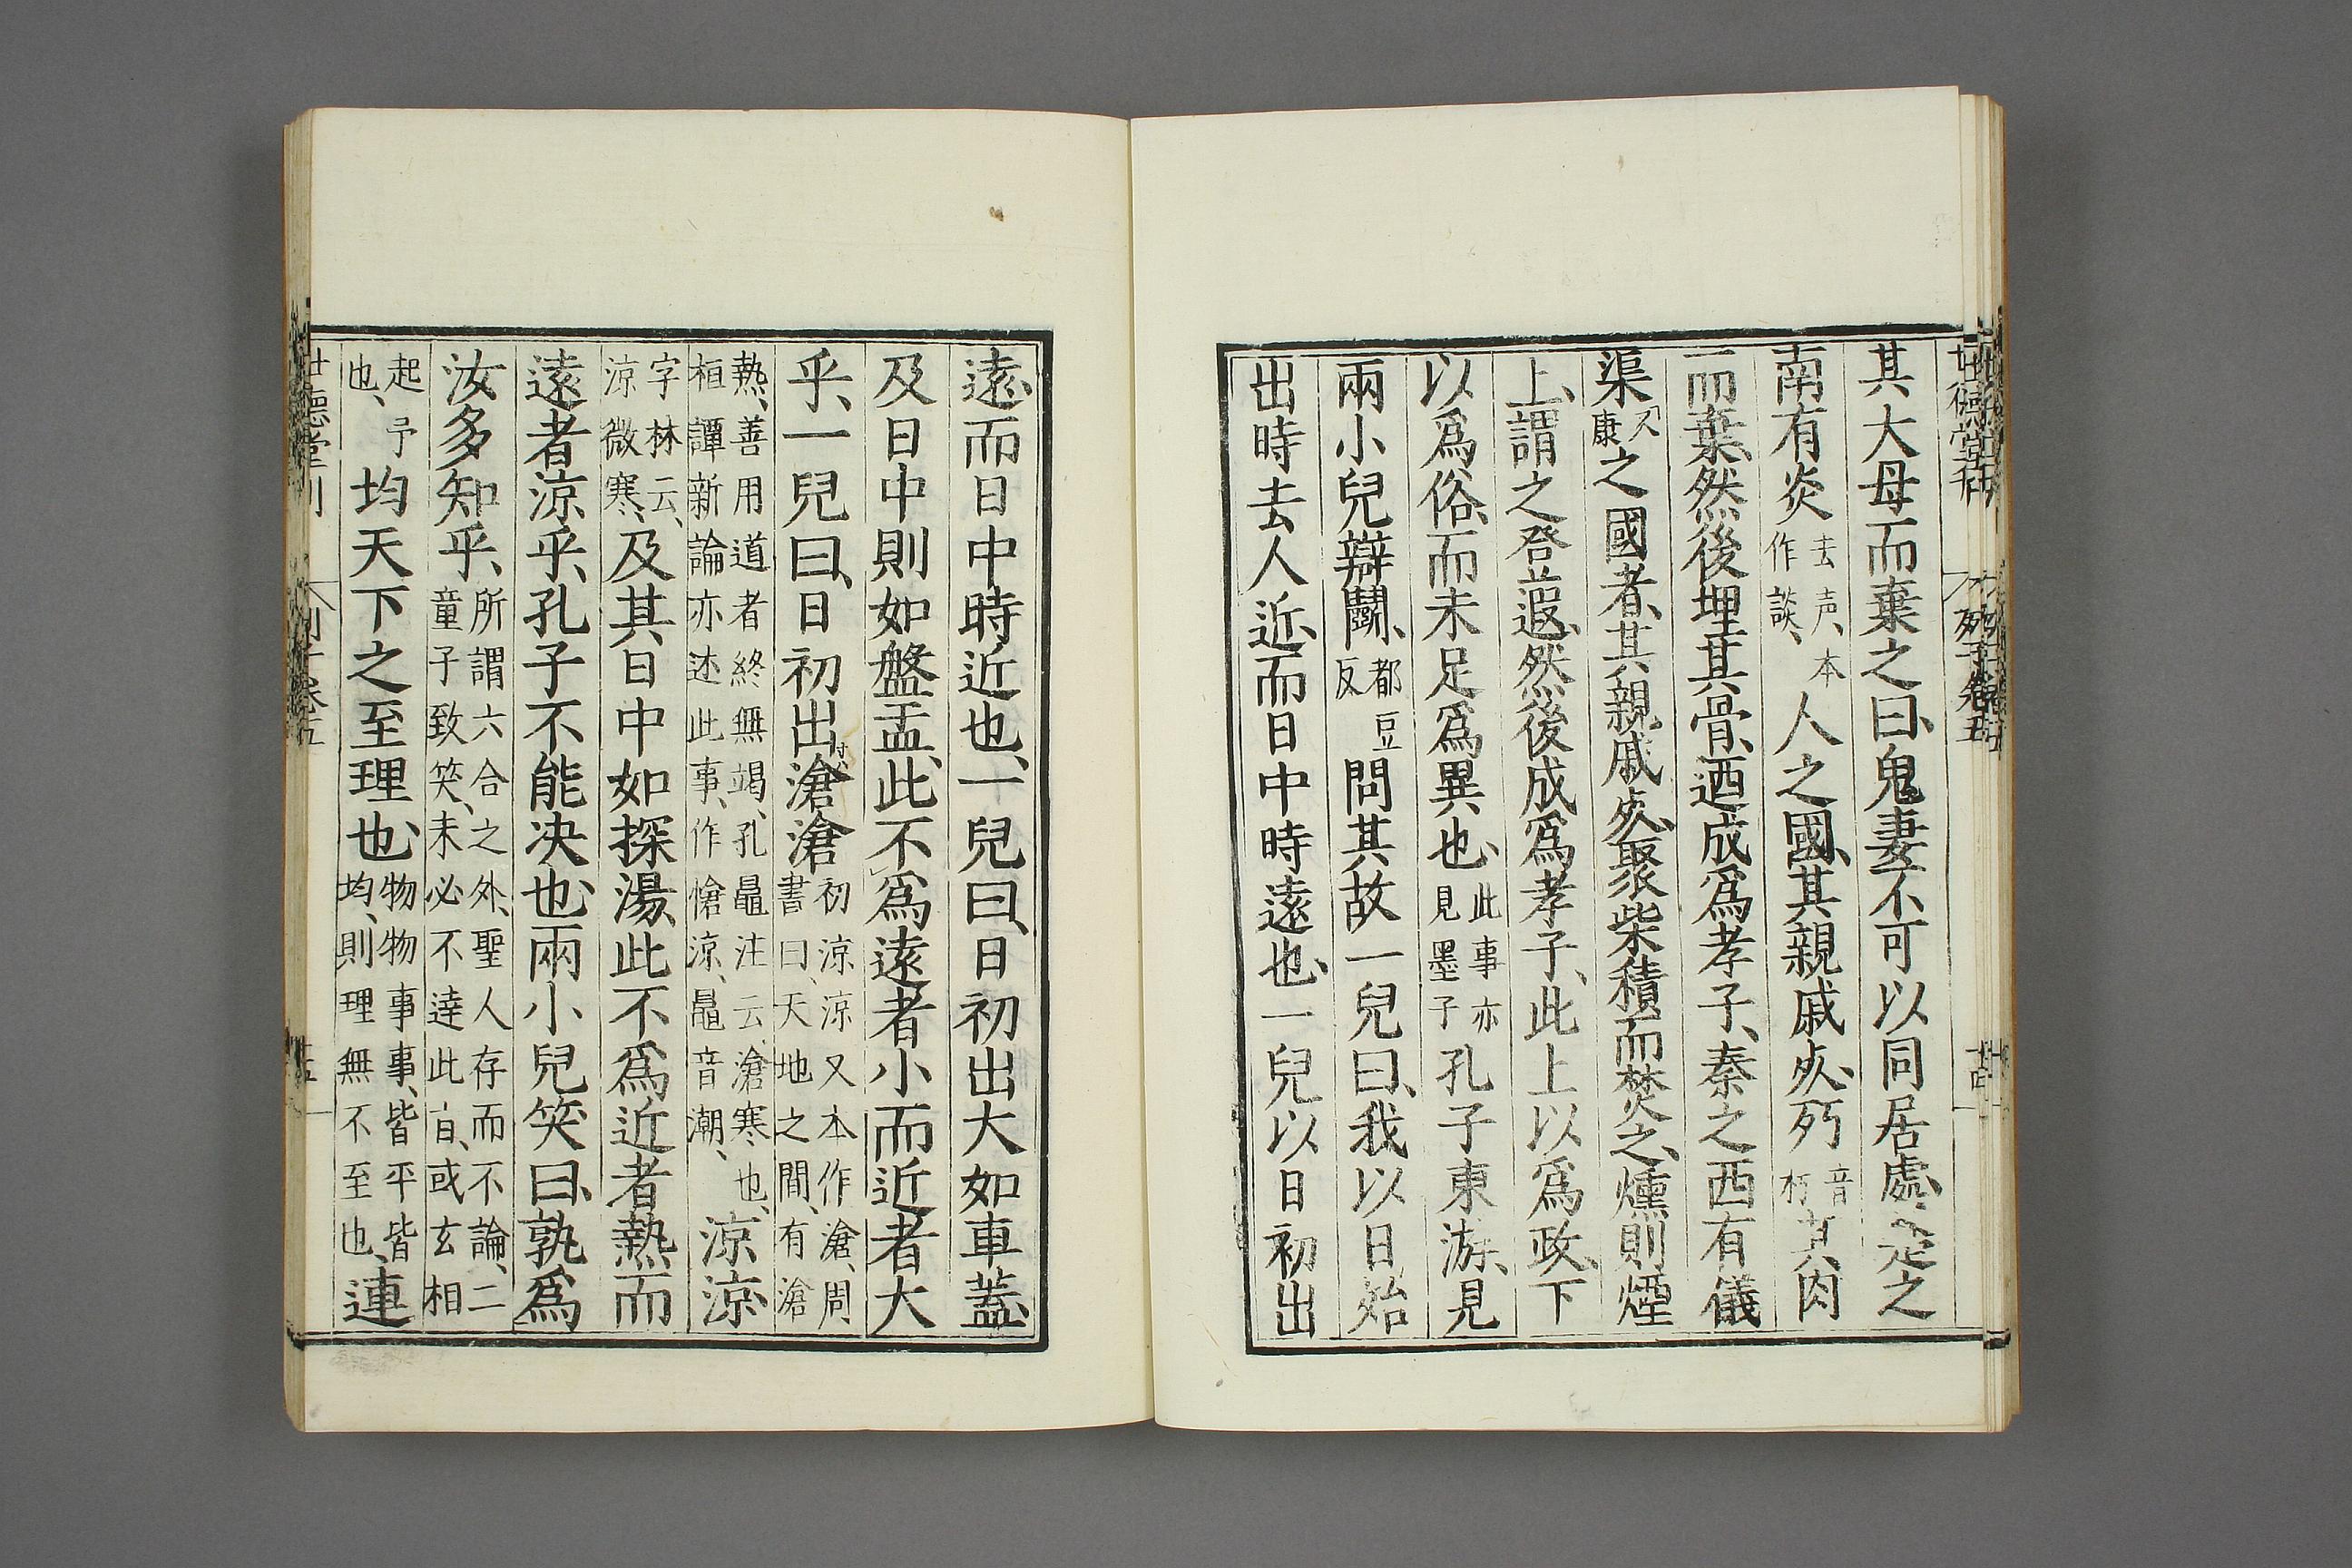 其大母而棄之曰鬼妻不可以同居處楚之
南有炎去声本作談人之國其親戚死𣧑音朽其肉
而棄然後埋其骨迺成爲孝子秦之西有儀
渠又康之國者其親戚死聚柴積而焚之燻則煙
上謂之登遐然後成爲孝子此上以爲政下
以爲俗而未足爲異也此事亦見墨子孔子東游見
兩小兒辯鬭都豆反問其故一兒曰我以日始
出時去人近而日中時遠也一兒以日初出
遠而日中時近也一兒曰日初出大如車蓋
及日中則如盤盂此不爲遠者小而近者大
乎一兒曰日初出滄滄初涼涼又本作滄周書曰天地之間有滄
熱善用道者終無竭孔鼂注云滄寒也桓譚新論亦述此事作愴涼鼂音潮涼涼
字林云涼微寒及其日中如探湯此不爲近者熱而
遠者涼乎孔子不能決也兩小兒笑曰孰爲
汝多知乎所謂六合之外聖人存而不論二童子致笑未必不達此旨或玄相
起予也均天下之至理也物物事事皆平皆均則理無不至也連
世德堂刊 列子卷五 十五